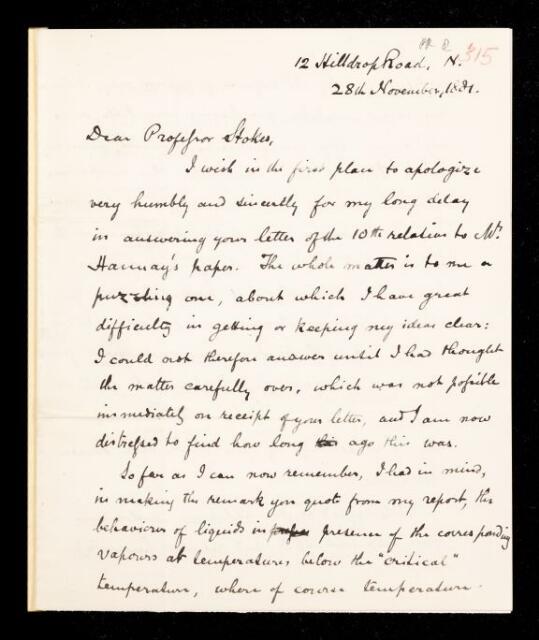 RR 8 315
12 Hilldrop Road, N.
28th November, 1881.
Dear Professor Stokes,
I wish in the first place to apologize
very humbly and sincerely for my long delay
in answering your letter of the 10th relative to Mr.
Hannay's paper. The whole matter is to me a
puzzling one, about which I have great
difficulty in getting or keeping my ideas clear:
I could not therefore answer until I had thought
the matter carefully over, which was not possible
immediately on receipt of your letter, and I am now
distressed to find how long ago this was.
So far as I can now remember, I had in mind,
in making the remark you quote from my report, the
behaviour of liquids in presence of the corresponding
vapours at temperatures below the "critical"
temperature, where of course temperature